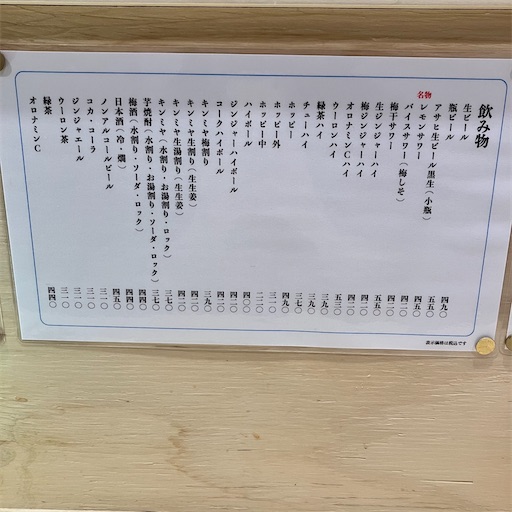 飲み物
生ビール 四九〇
瓶ビール 五五〇
アサヒ生ビール黒生(小瓶) 四五〇
名物 レモンサワー 四二〇
バイスサワー(梅しそ) 四二〇
梅干サワー 五五〇
生ジンジャーハイ 四二〇
梅ジンジャーハイ 四二〇
オロナミンCハイ 五三〇
ウーロンハイ 三九〇
緑茶ハイ 三九〇
チューハイ 三七〇
ホッピー 四九〇
ホッピー外 三一〇
ホッピー中 二二〇
ハイボール 四二〇
ジンジャーハイボール 四二〇
コークハイボール 四二〇
キンミヤ梅割り 三九〇
キンミヤ生割り(生生姜) 四二〇
キンミヤ生湯割り(生生姜) 四二〇
キンミヤ(水割り・お湯割り・ロック) 三七〇
芋焼酎(水割り・お湯割り・ソーダ・ロック) 三七〇
梅酒(水割り・ソーダ・ロック) 四四〇
日本酒(冷・燗) 四四〇
ノンアルコールビール 四五〇
コカ・コーラ 三一〇
ジンジャエール 三一〇
ウーロン茶 三一〇
緑茶 三一〇
オロナミンC 四四〇
表示価格は税込です